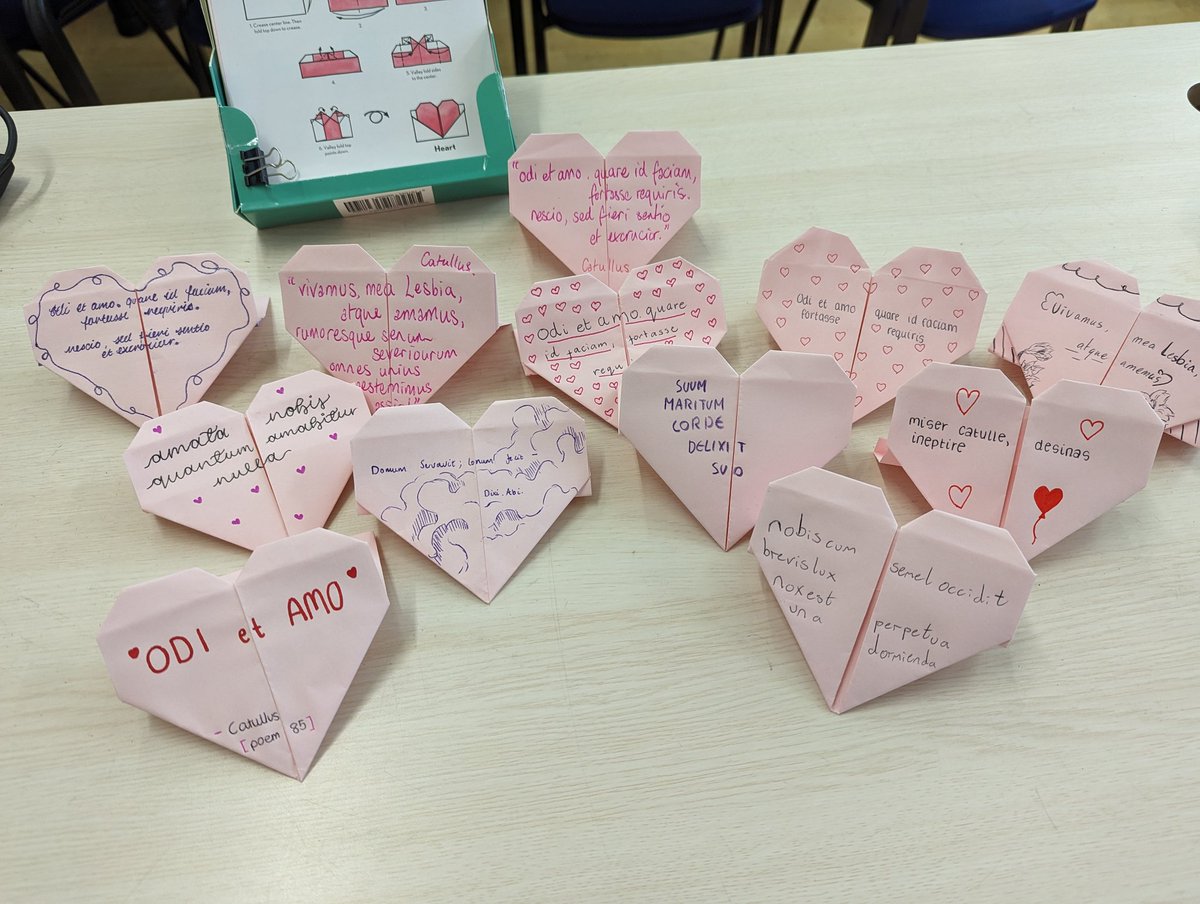 1. Crease center line. Then
fold top down to crease.
2.
3.
4.
5. Valley fold sides
to the center.
6. Valley fold top
points down.
Heart
"odi et amo. quare id faciam,
fortasse requiris.
nescio, sed fieri sentio
et excrucior."
Catullus
Odi et amo. quare id faciam,
fortasse requiris.
nescio, sed fieri sentio
et excrucior.
Catullus
"vivamus, mea Lesbia,
atque amamus,
rumoresque senum
severiourum
omnes unius
aestemimus
assis!"
Odi et amo. quare
id faciam, fortasse
requ
Odi et amo quare id faciam
fortasse requiris
Vivamus, mea Lesbia,
atque amemus
amata nobis
quantum amabitur
nulla
Domum servavit; lanum fecit -
Dixi. Abi.
SUUM
MARITUM
CORDE
DELIXIT
SUO
miser catulle,
ineptire
desinas
nobiscum
brevis lux
nox est
una
semel occidit
perpetua
dormienda
ODI et AMO
- Catullus
[poem 85]